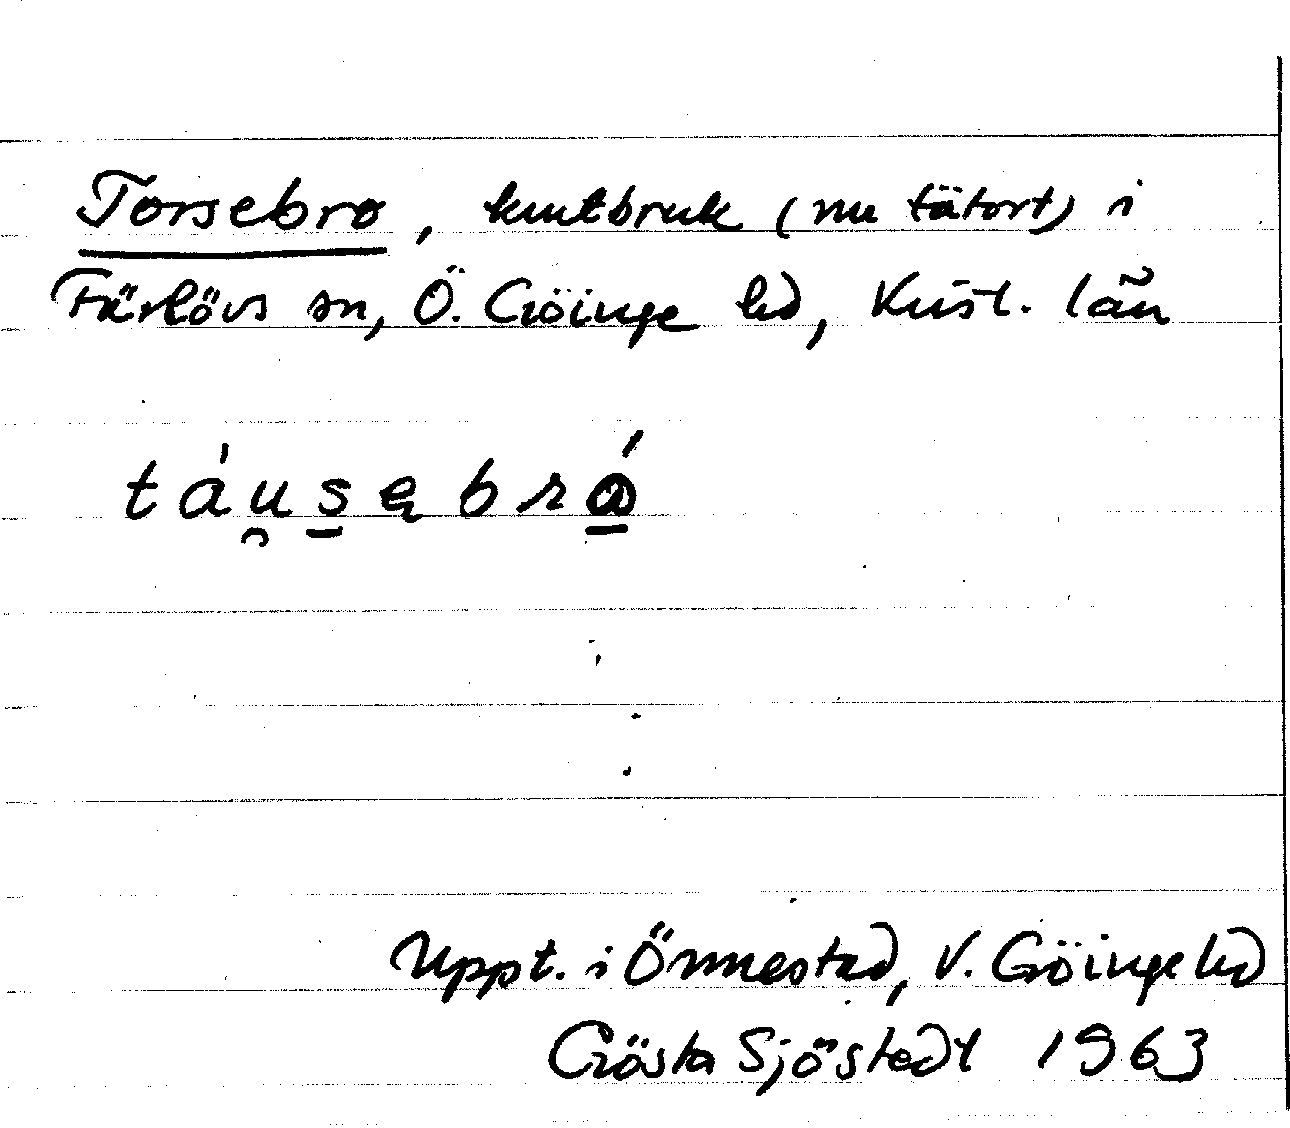 Torsebro, krutbruk (nu tätort) i
Färlövs sn, Ö. Göinge hd, Krist. län
táu̯s̠ębrá̠
Uppt. i Önnestad, V. Göinge hd
Gösta Sjöstedt 1963